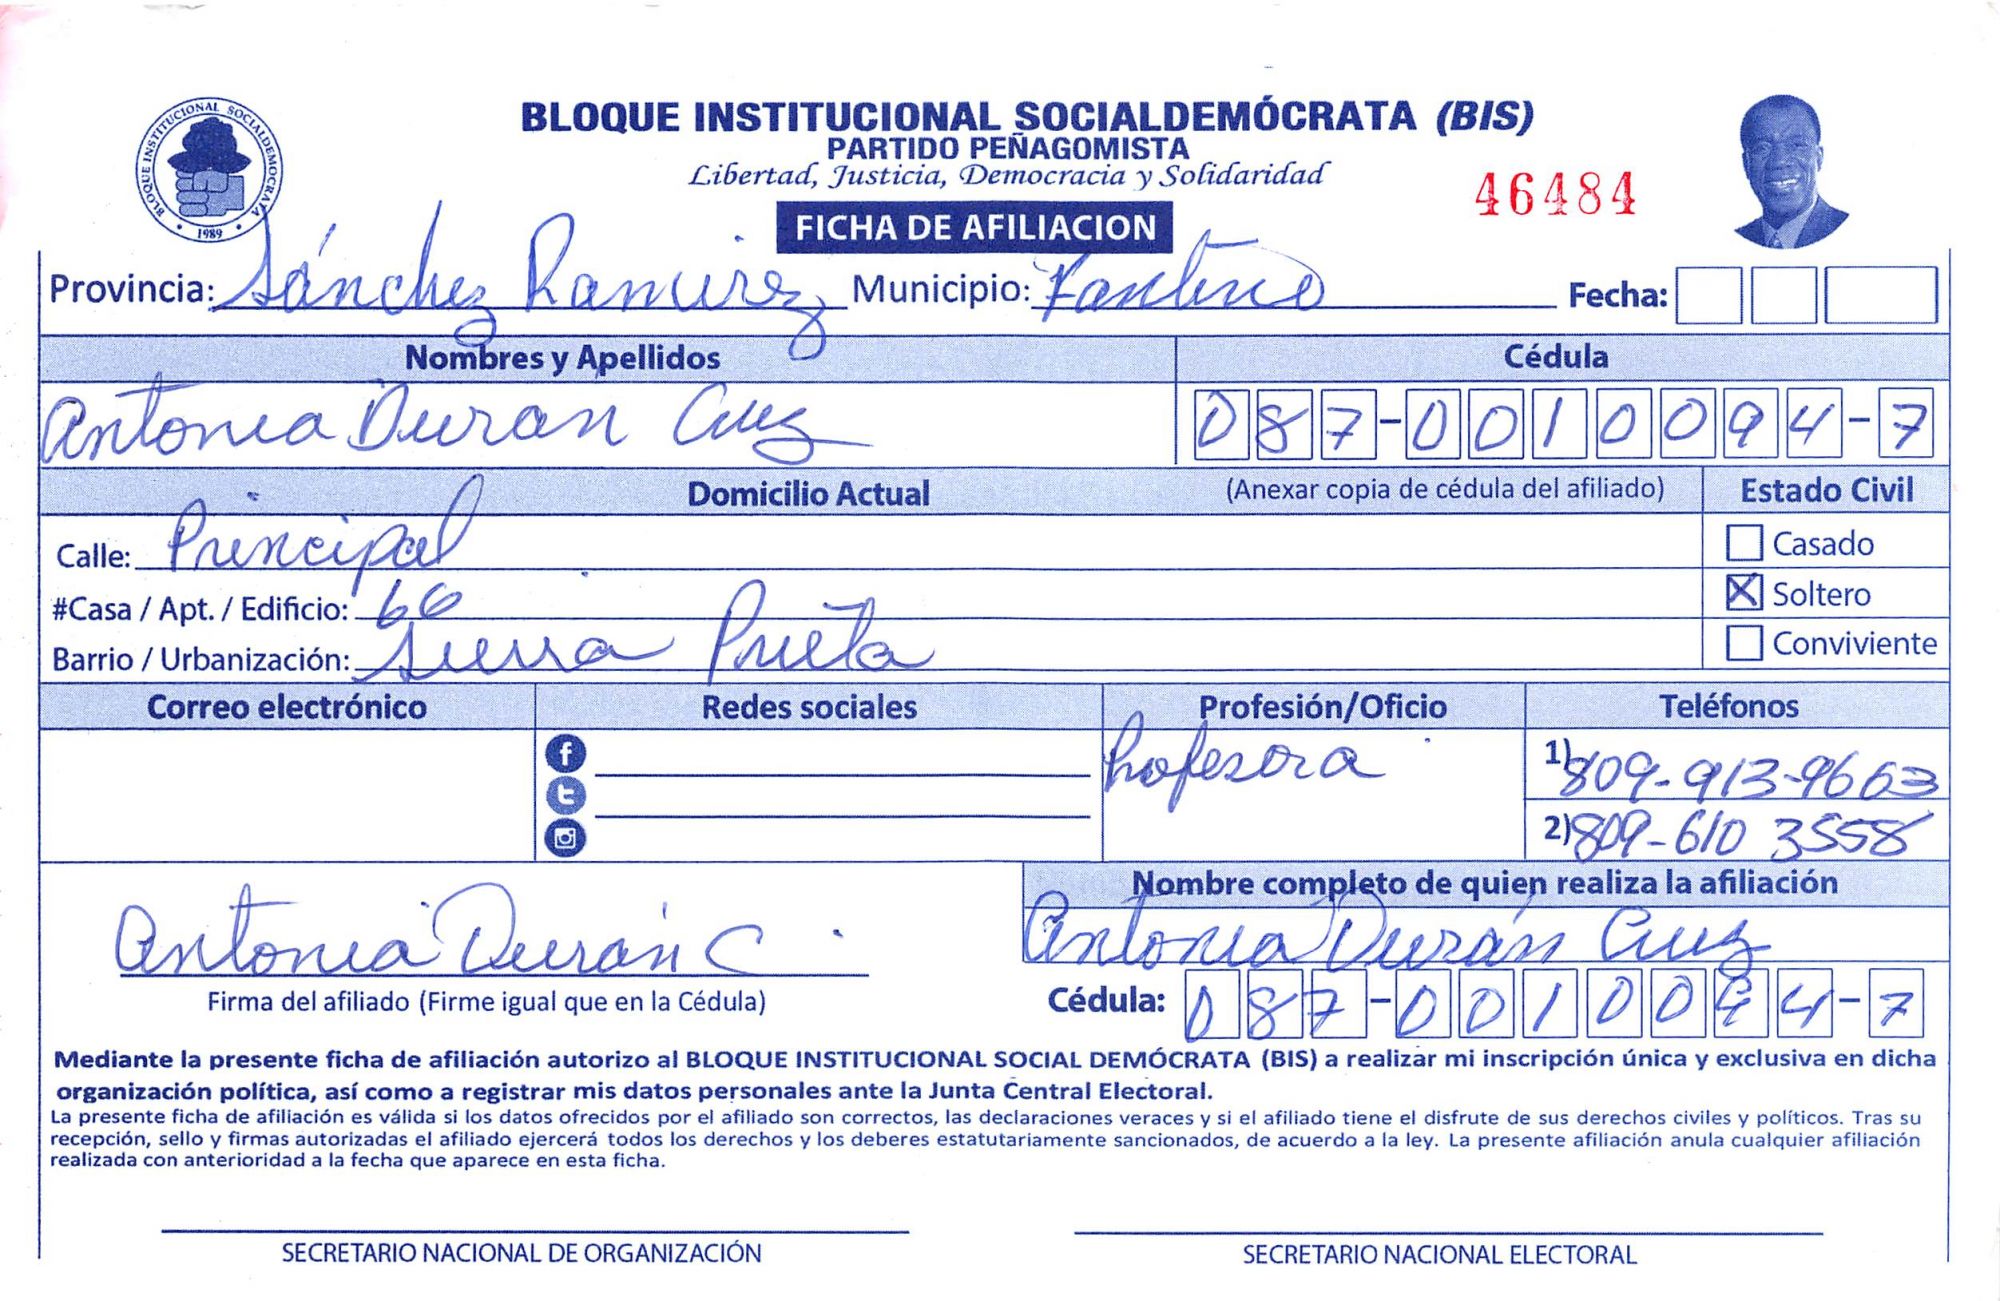 BLOQUE INSTITUCIONAL SOCIALDEMÓCRATA (BIS)
PARTIDO PEÑAGOMISTA
Libertad, Justicia, Democracia y Solidaridad
46484
BLOQUE INSTITUCIONAL SOCIALDEMOCRATA
1989
FICHA DE AFILIACION
Provincia: Sánchez Ramirez Municipio: Fantino Fecha:
Nombres y Apellidos Cédula
Antonia Duran Cruz 087-0010094-7
Domicilio Actual (Anexar copia de cédula del afiliado) Estado Civil
Calle: Principal Casado
#Casa / Apt. / Edificio: 66 Soltero
Barrio / Urbanización: Sierra Prieta Conviviente
Correo electrónico Redes sociales Profesión/Oficio Teléfonos
Profesora 1) 809-913-9663
2) 809-610 3558
Nombre completo de quien realiza la afiliación
Antonia Durán C. Antonia Durán Cruz
Firma del afiliado (Firme igual que en la Cédula) Cédula: 087-0010094-7
Mediante la presente ficha de afiliación autorizo al BLOQUE INSTITUCIONAL SOCIAL DEMÓCRATA (BIS) a realizar mi inscripción única y exclusiva en dicha
organización política, así como a registrar mis datos personales ante la Junta Central Electoral.
La presente ficha de afiliación es válida si los datos ofrecidos por el afiliado son correctos, las declaraciones veraces y si el afiliado tiene el disfrute de sus derechos civiles y políticos. Tras su
recepción, sello y firmas autorizadas el afiliado ejercerá todos los derechos y los deberes estatutariamente sancionados, de acuerdo a la ley. La presente afiliación anula cualquier afiliación
realizada con anterioridad a la fecha que aparece en esta ficha.
SECRETARIO NACIONAL DE ORGANIZACIÓN SECRETARIO NACIONAL ELECTORAL